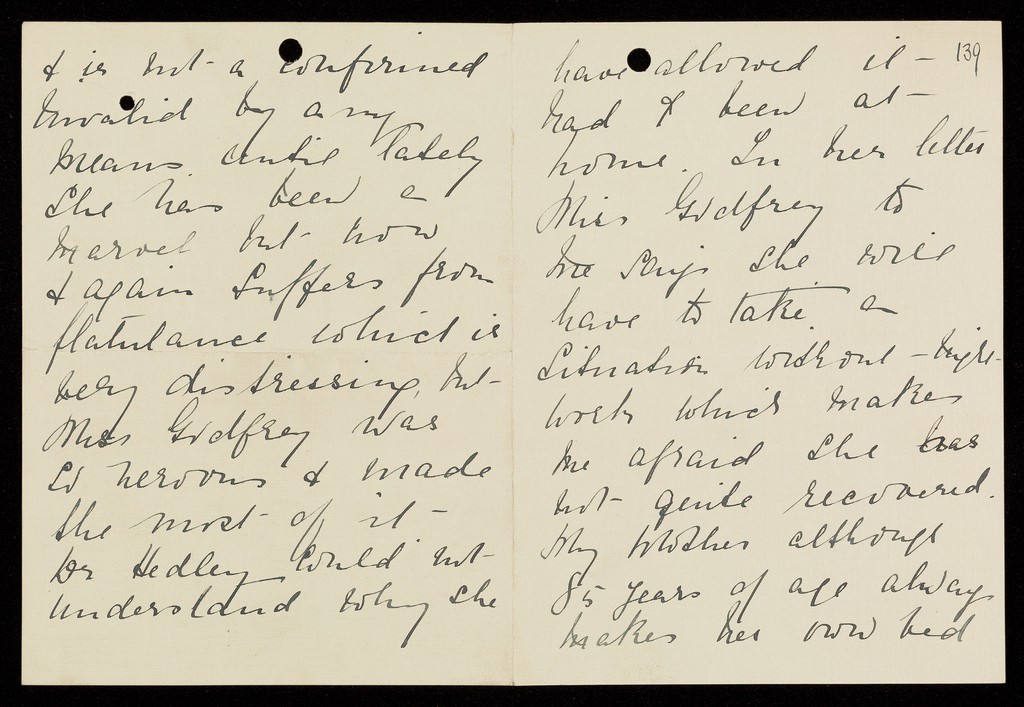 & is not a confirmed
invalid by any
means until lately
she has been a
marvel but now
& again suffers from
flatulance which is
very distressing, but
Miss Godfrey was
so nervous & made
the most of it -
Dr Hedley could not
understand why she
139
have allowed it -
had I been at
home. In her letter
Miss Godfrey to
me says she will
have to take a
situation without - night-
work which makes
me afraid she has
not quite recovered.
My Mother although
85 years of age always
makes her own bed